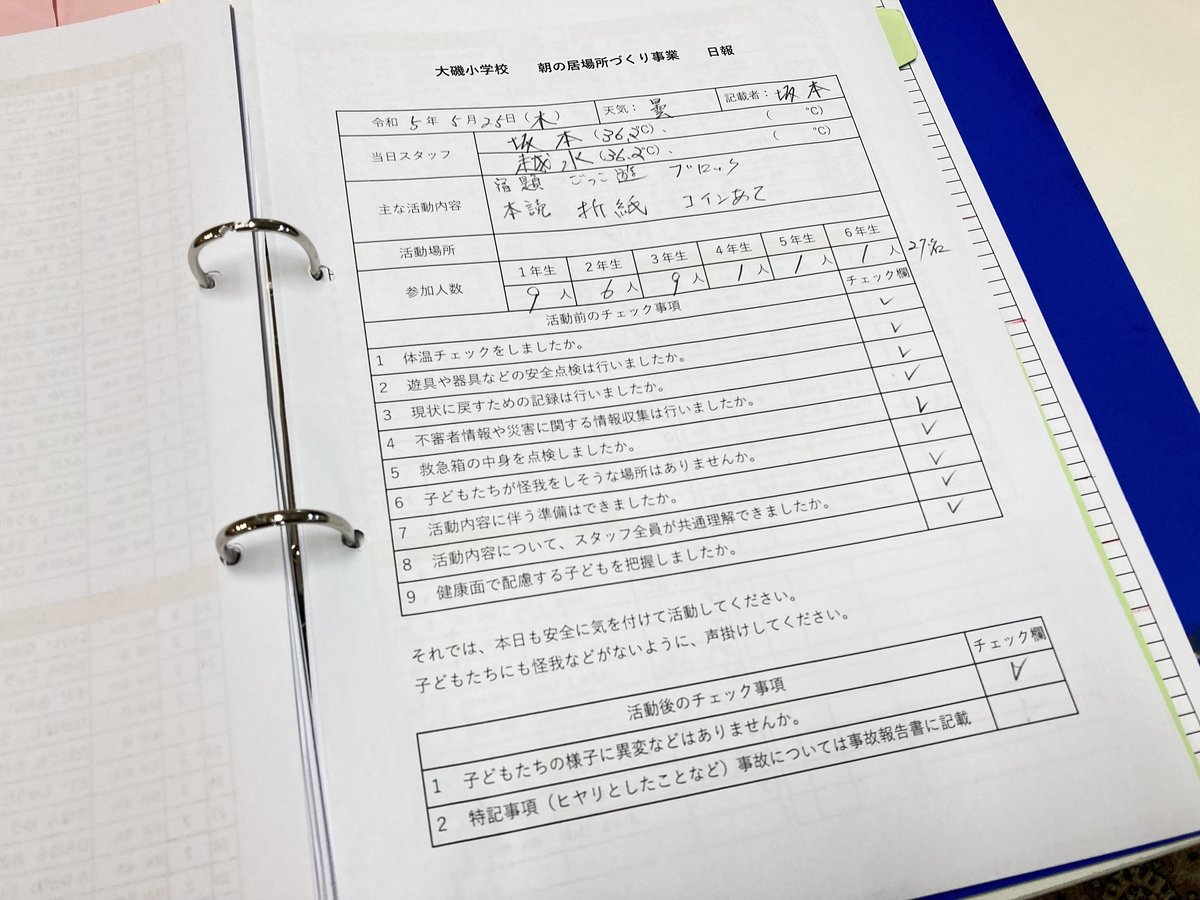 大磯小学校 朝の居場所づくり事業 日報
令和 5年 5月25日(木) 天気：曇 記載者：坂本
当日スタッフ 坂本(36.2℃)、 ( ℃)
越水(36.2℃)、 ( ℃)
主な活動内容 宿題 ごっこ遊 ブロック
本読 折紙 コインあて
活動場所
参加人数 1年生 2年生 3年生 4年生 5年生 6年生
9人 6人 9人 1人 1人 1人 27名
活動前のチェック事項 チェック欄
1 体温チェックをしましたか。 ✓
2 遊具や器具などの安全点検は行いましたか。 ✓
3 現状に戻すための記録は行いましたか。 ✓
4 不審者情報や災害に関する情報収集は行いましたか。 ✓
5 救急箱の中身を点検しましたか。 ✓
6 子どもたちが怪我をしそうな場所はありませんか。 ✓
7 活動内容に伴う準備はできましたか。 ✓
8 活動内容について、スタッフ全員が共通理解できましたか。 ✓
9 健康面で配慮する子どもを把握しましたか。 ✓
それでは、本日も安全に気を付けて活動してください。
子どもたちにも怪我などがないように、声掛けしてください。
活動後のチェック事項 チェック欄
1 子どもたちの様子に異変などはありませんか。 ✓
2 特記事項（ヒヤリとしたことなど）事故については事故報告書に記載